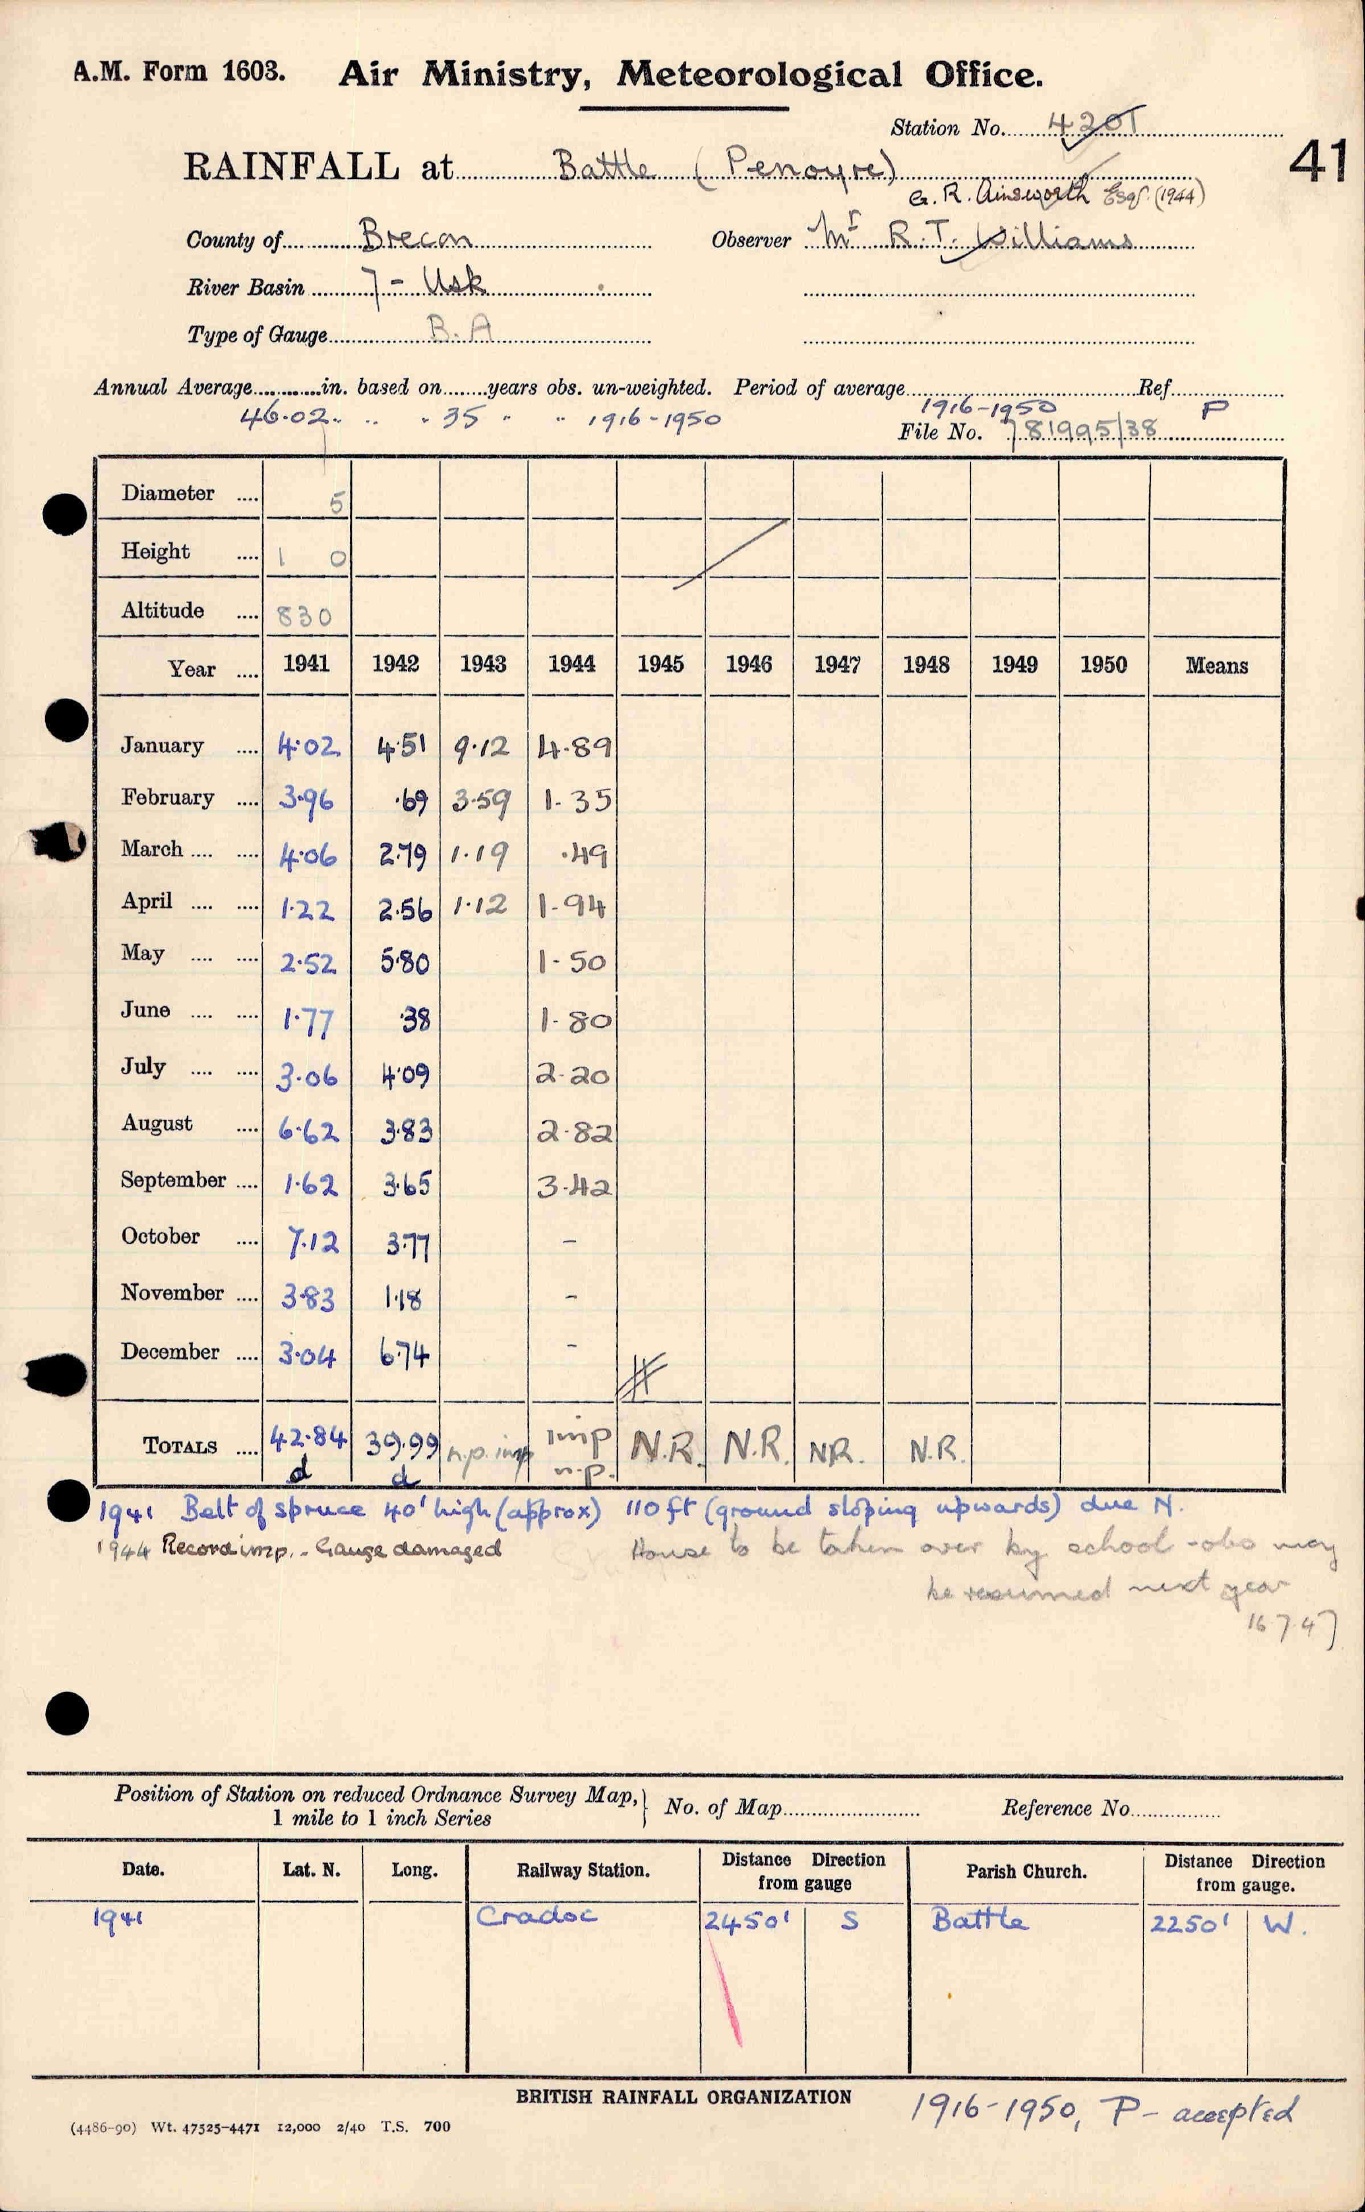 A.M. Form 1603. Air Ministry, Meteorological Office.
Station No. 4201
41
RAINFALL at Battle (Penoyre)
G. R. Ainsworth Esq. (1944)
County of Brecon Observer Mr R.T. Williams
River Basin 7 - Usk
Type of Gauge B.A
Annual Average in. based on years obs. un-weighted. Period of average Ref.
46.02 .. .. 35 " " 1916-1950 1916-1950 P
File No. 781995/38
Diameter .... 5
Height .... 1 0
Altitude .... 830
Year .... 1941 1942 1943 1944 1945 1946 1947 1948 1949 1950 Means
January .... 4.02 4.51 9.12 4.89
February .... 3.96 .69 3.59 1.35
March .... .... 4.06 2.79 1.19 .49
April .... .... 1.22 2.56 1.12 1.94
May .... .... 2.52 5.80 1.50
June .... .... 1.77 .38 1.80
July .... .... 3.06 4.09 2.20
August .... 6.62 3.83 2.82
September .... 1.62 3.65 3.42
October .... 7.12 3.77 -
November .... 3.83 1.18 -
December .... 3.04 6.74 -
TOTALS .... 42.84 39.99 n.p. imp imp N.R. N.R. N.R. N.R.
d d n.p.
1941 Belt of spruce 40' high (approx) 110 ft (ground sloping upwards) due N.
1944 Record imp. - Gauge damaged House to be taken over by school - obs may
be resumed next year
16 7 47
Position of Station on reduced Ordnance Survey Map, No. of Map Reference No.
1 mile to 1 inch Series
Date. Lat. N. Long. Railway Station. Distance Direction from gauge Parish Church. Distance Direction from gauge.
1941 Cradoc 2450' S Battle 2250' W.
BRITISH RAINFALL ORGANIZATION
1916-1950, P - accepted
(4486-90) Wt. 47525-4471 12,000 2/40 T.S. 700